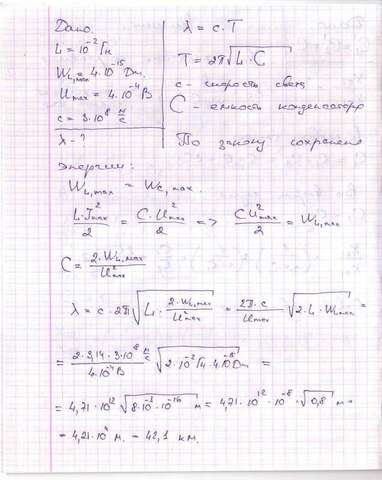 Дано:
L = 10⁻² Гн
W_L,max = 4·10⁻¹⁵ Дж.
U_max = 4·10⁻⁴ В
c = 3·10⁸ м/с
λ - ?
λ = c·T
T = 2π√(L·C)
c - скорость света
C - емкость конденсатора
По закону сохранения
энергии:
W_L,max = W_C,max.
L·I²_max/2 = C·U²_max/2 => CU²_max/2 = W_L,max
C = 2·W_L,max/U²_max
λ = c·2π√(L·2·W_L,max/U²_max) = 2π·c/U_max·√(2·L·W_L,max) =
= 2·3,14·3·10⁸ м/с/4·10⁻⁴ В √(2·10⁻² Гн·4·10⁻¹⁵ Дж) =
= 4,71·10¹² √(8·10⁻¹·10⁻¹⁶) м = 4,71·10¹²·10⁻⁸·√0,8 м =
= 4,21·10⁴ м. = 42,1 км.